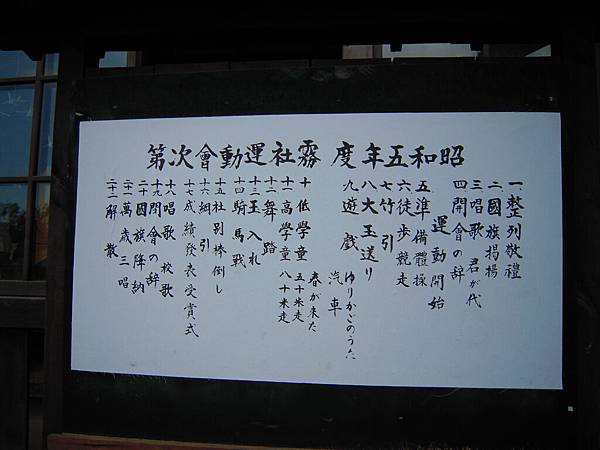 昭和五年度 霧社運動會次第
一、整列敬禮
二、國旗揭揚
三唱歌 君が代
四開會の辞
運動開始
五準備體操
六徒歩競走
七竹引
八大玉送り
九遊戲 ゆりかごのうた
汽車
春が来た
十低學童 五十米走
十一高學童 八十米走
十二舞路
十三玉入れ
十四騎馬戰
十五社別棒倒し
十六綱引
十七成績發表受賞式
十八唱歌 校歌
十九閉會の辞
二十國旗降納
二十一萬歳三唱
二十二解散